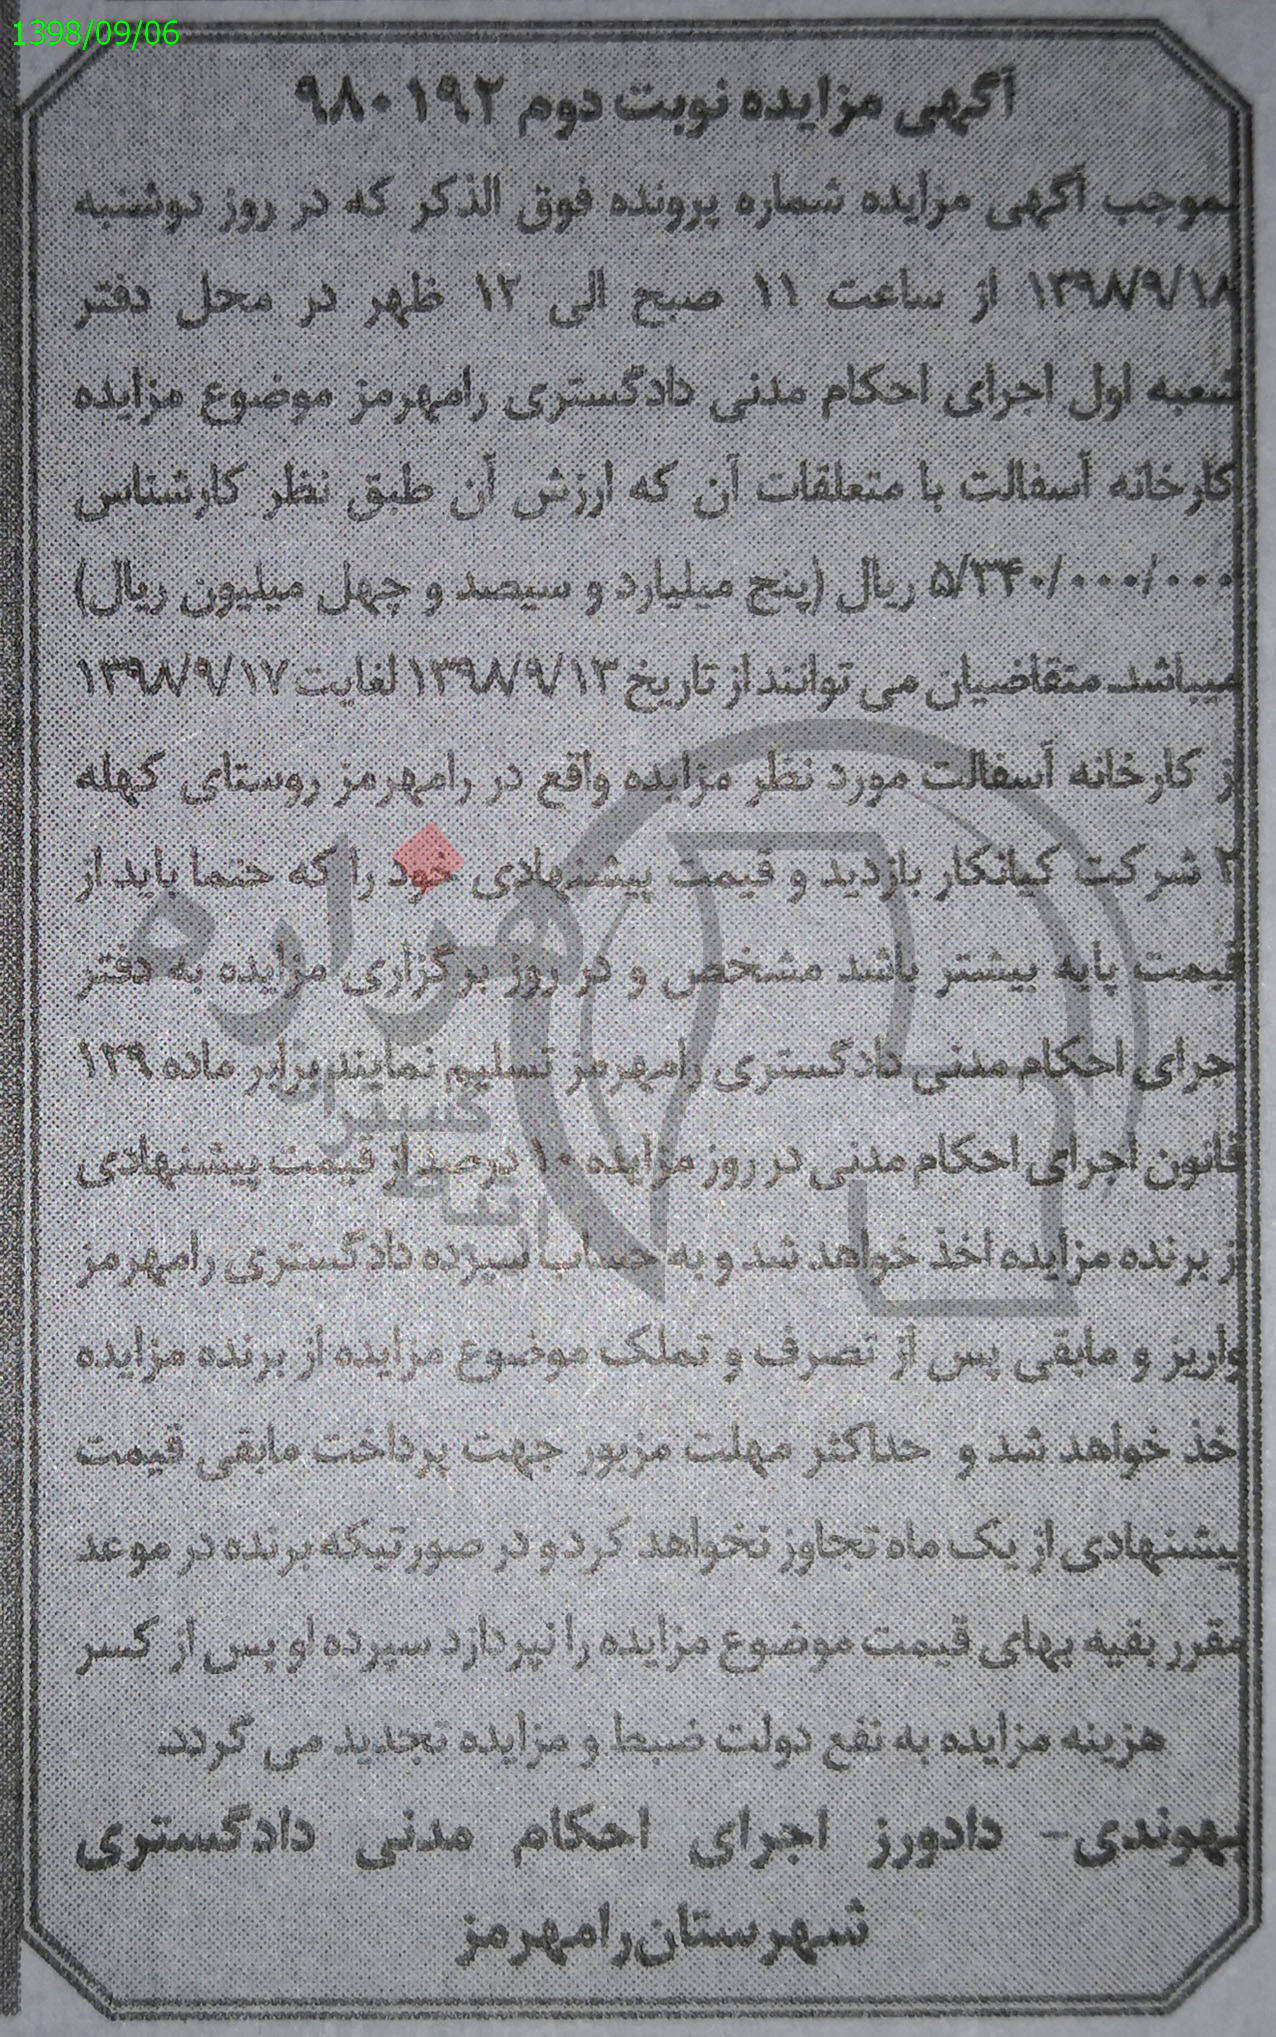 1398/09/06
آگهی مزایده نوبت دوم ۹۸۰۱۹۲
بموجب آگهی مزایده شماره پرونده فوق الذکر که در روز دوشنبه
۱۳۹۸/۹/۱۸ از ساعت ۱۱ صبح الی ۱۲ ظهر در محل دفتر
شعبه اول اجرای احکام مدنی دادگستری رامهرمز موضوع مزایده
کارخانه آسفالت با متعلقات آن که ارزش آن طبق نظر کارشناس
۵/۳۴۰/۰۰۰/۰۰۰ ریال (پنج میلیارد و سیصد و چهل میلیون ریال)
میباشد. متقاضیان می توانند از تاریخ ۱۳۹۸/۹/۱۳ لغایت ۱۳۹۸/۹/۱۷
از کارخانه آسفالت مورد نظر مزایده واقع در رامهرمز روستای کهله
۲ شرکت کیانکار بازدید و قیمت پیشنهادی خود را که حتما باید از
قیمت پایه بیشتر باشد مشخص و در روز برگزاری مزایده به دفتر
اجرای احکام مدنی دادگستری رامهرمز تسلیم نمایند برابر ماده ۱۲۹
قانون اجرای احکام مدنی در روز مزایده ۱۰ درصد از قیمت پیشنهادی
از برنده مزایده اخذ خواهد شد و به حساب سپرده دادگستری رامهرمز
واریز و مابقی پس از تصرف و تملک موضوع مزایده از برنده مزایده
اخذ خواهد شد و حداکثر مهلت مزبور جهت پرداخت مابقی قیمت
پیشنهادی از یک ماه تجاوز نخواهد کرد و در صورتیکه برنده در موعد
مقرر بقیه بهای قیمت موضوع مزایده را نپردازد سپرده او پس از کسر
هزینه مزایده به نفع دولت ضبط و مزایده تجدید می گردد.
بهوندی- دادورز اجرای احکام مدنی دادگستری
شهرستان رامهرمز
هزاره
گستران